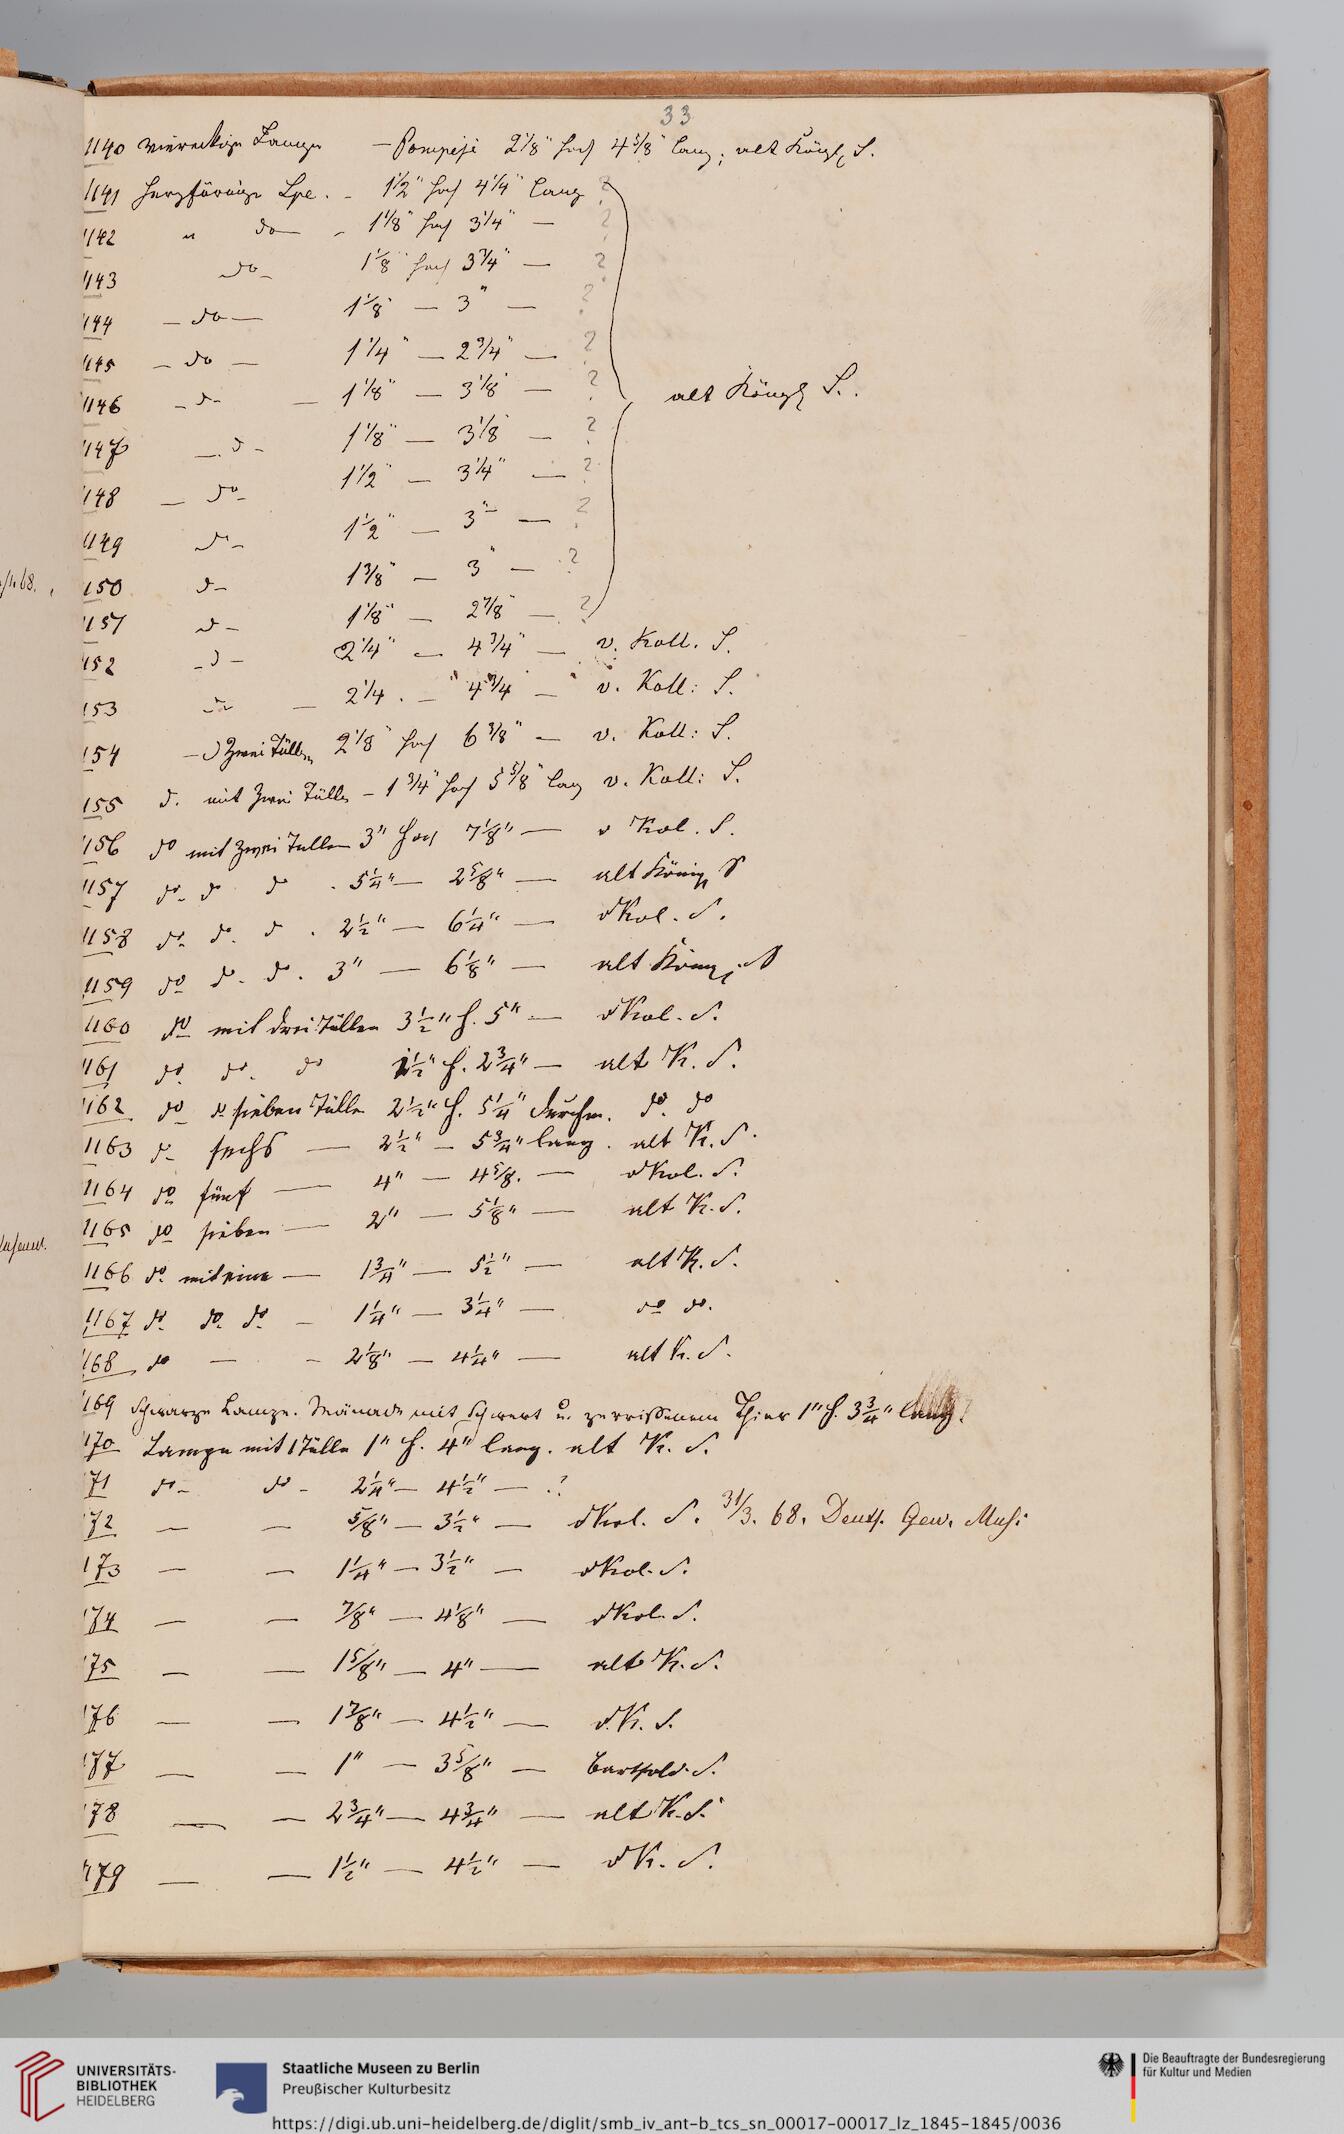 33
1140 viereckige Lampe — Pompeji 2 1/8" hoch 4 5/8" lang; alt Königl. S.
1141 herzförmige Lpe. - 1 1/2" hoch 4 1/4" lang ?
1142 " do — - 1 1/8" hoch 3 1/4" — ?
1143 do - 1 1/8" hoch 3 3/4" — ?
1144 — do — 1 1/8" — 3" — ?
1145 — do — 1 1/4" — 2 3/4" — ?
1146 - do - — 1 1/8" — 3 1/8" — ? alt Königl S.
1147 — do - 1 1/8" — 3 1/8 — ?
1148 — do - 1 1/2" — 3 1/4" — ?
1149 do - 1 1/2" — 3" — ?
1150 do - 1 3/8" — 3" — ?
1151 do - 1 1/8" — 2 7/8" — ?
1152 - do - 2 1/4" — 4 3/4" — v. Koll. S.
1153 do — 2 1/4 . — " 4 3/4 — v. Koll: S.
1154 — d zwei Tüllen 2 1/8" hoch 6 3/8" — v. Koll: S.
1155 d. mit zwei Tüllen — 1 3/4" hoch 5 5/8" lang v. Koll: S.
1156 do mit zwei Tullen 3" hoch 7 1/8" — v Kol. S.
1157 do do do . 5 1/4" — 2 5/8" — alt König S
1158 do do. do . 2 1/2" — 6 1/4" — v Kol. S.
1159 do do. do. 3" — 6 1/8" — alt König. S
1160 do mit drei Tüllen 3 1/2" h. 5" — v Kol. S.
1161 do. do. do 1 1/2" h. 2 3/4" — alt K. S.
1162 do do sieben Tülle 2 1/2" h. 5 1/4" durchm. do. do
1163 do sechs — 2 1/2" — 5 3/4" lang. alt K. S.
1164 do fünf — 4" — 4 5/8. — v Kol. S.
1165 do sieben — 2" — 5 1/8" — alt K. S.
1166 do mit eine — 1 3/4" — 5 1/2" — alt K. S.
1167 do. do. do — 1 1/4" — 3 1/4" — do do.
1168 do — - 2 1/8" — 4 1/4" — alt K. S.
1169 Schwarze Lampe. Mänade mit Schwert u. zerrissenem Thier 1" h. 3 3/4" lang.
1170 Lampe mit 1 Tülle 1" h. 4" lang. alt K. S.
71 do - do - 2 1/4" — 4 1/2" — . ?
72 — — 5/8" — 3 1/2" — v Kol. S. 31/3. 68. Deuts. Gew. Mus:
173 — — 1 1/4" — 3 1/2" — v Kol. S.
174 — — 7/8" — 4 1/8" — v Kol. S.
175 — — 1 5/8" — 4" — alt K. S.
176 — — 1 7/8" — 4 1/2" — v. K. S.
177 — — 1" — 3 5/8" — Barthold. S.
178 — — 2 3/4" — 4 3/4" — alt K. S.
179 — — 1 1/2" — 4 1/2" — v K. S.
UNIVERSITÄTS-
BIBLIOTHEK
HEIDELBERG
Staatliche Museen zu Berlin
Preußischer Kulturbesitz
Die Beauftragte der Bundesregierung
für Kultur und Medien
https://digi.ub.uni-heidelberg.de/diglit/smb_iv_ant-b_tcs_sn_00017-00017_lz_1845-1845/0036